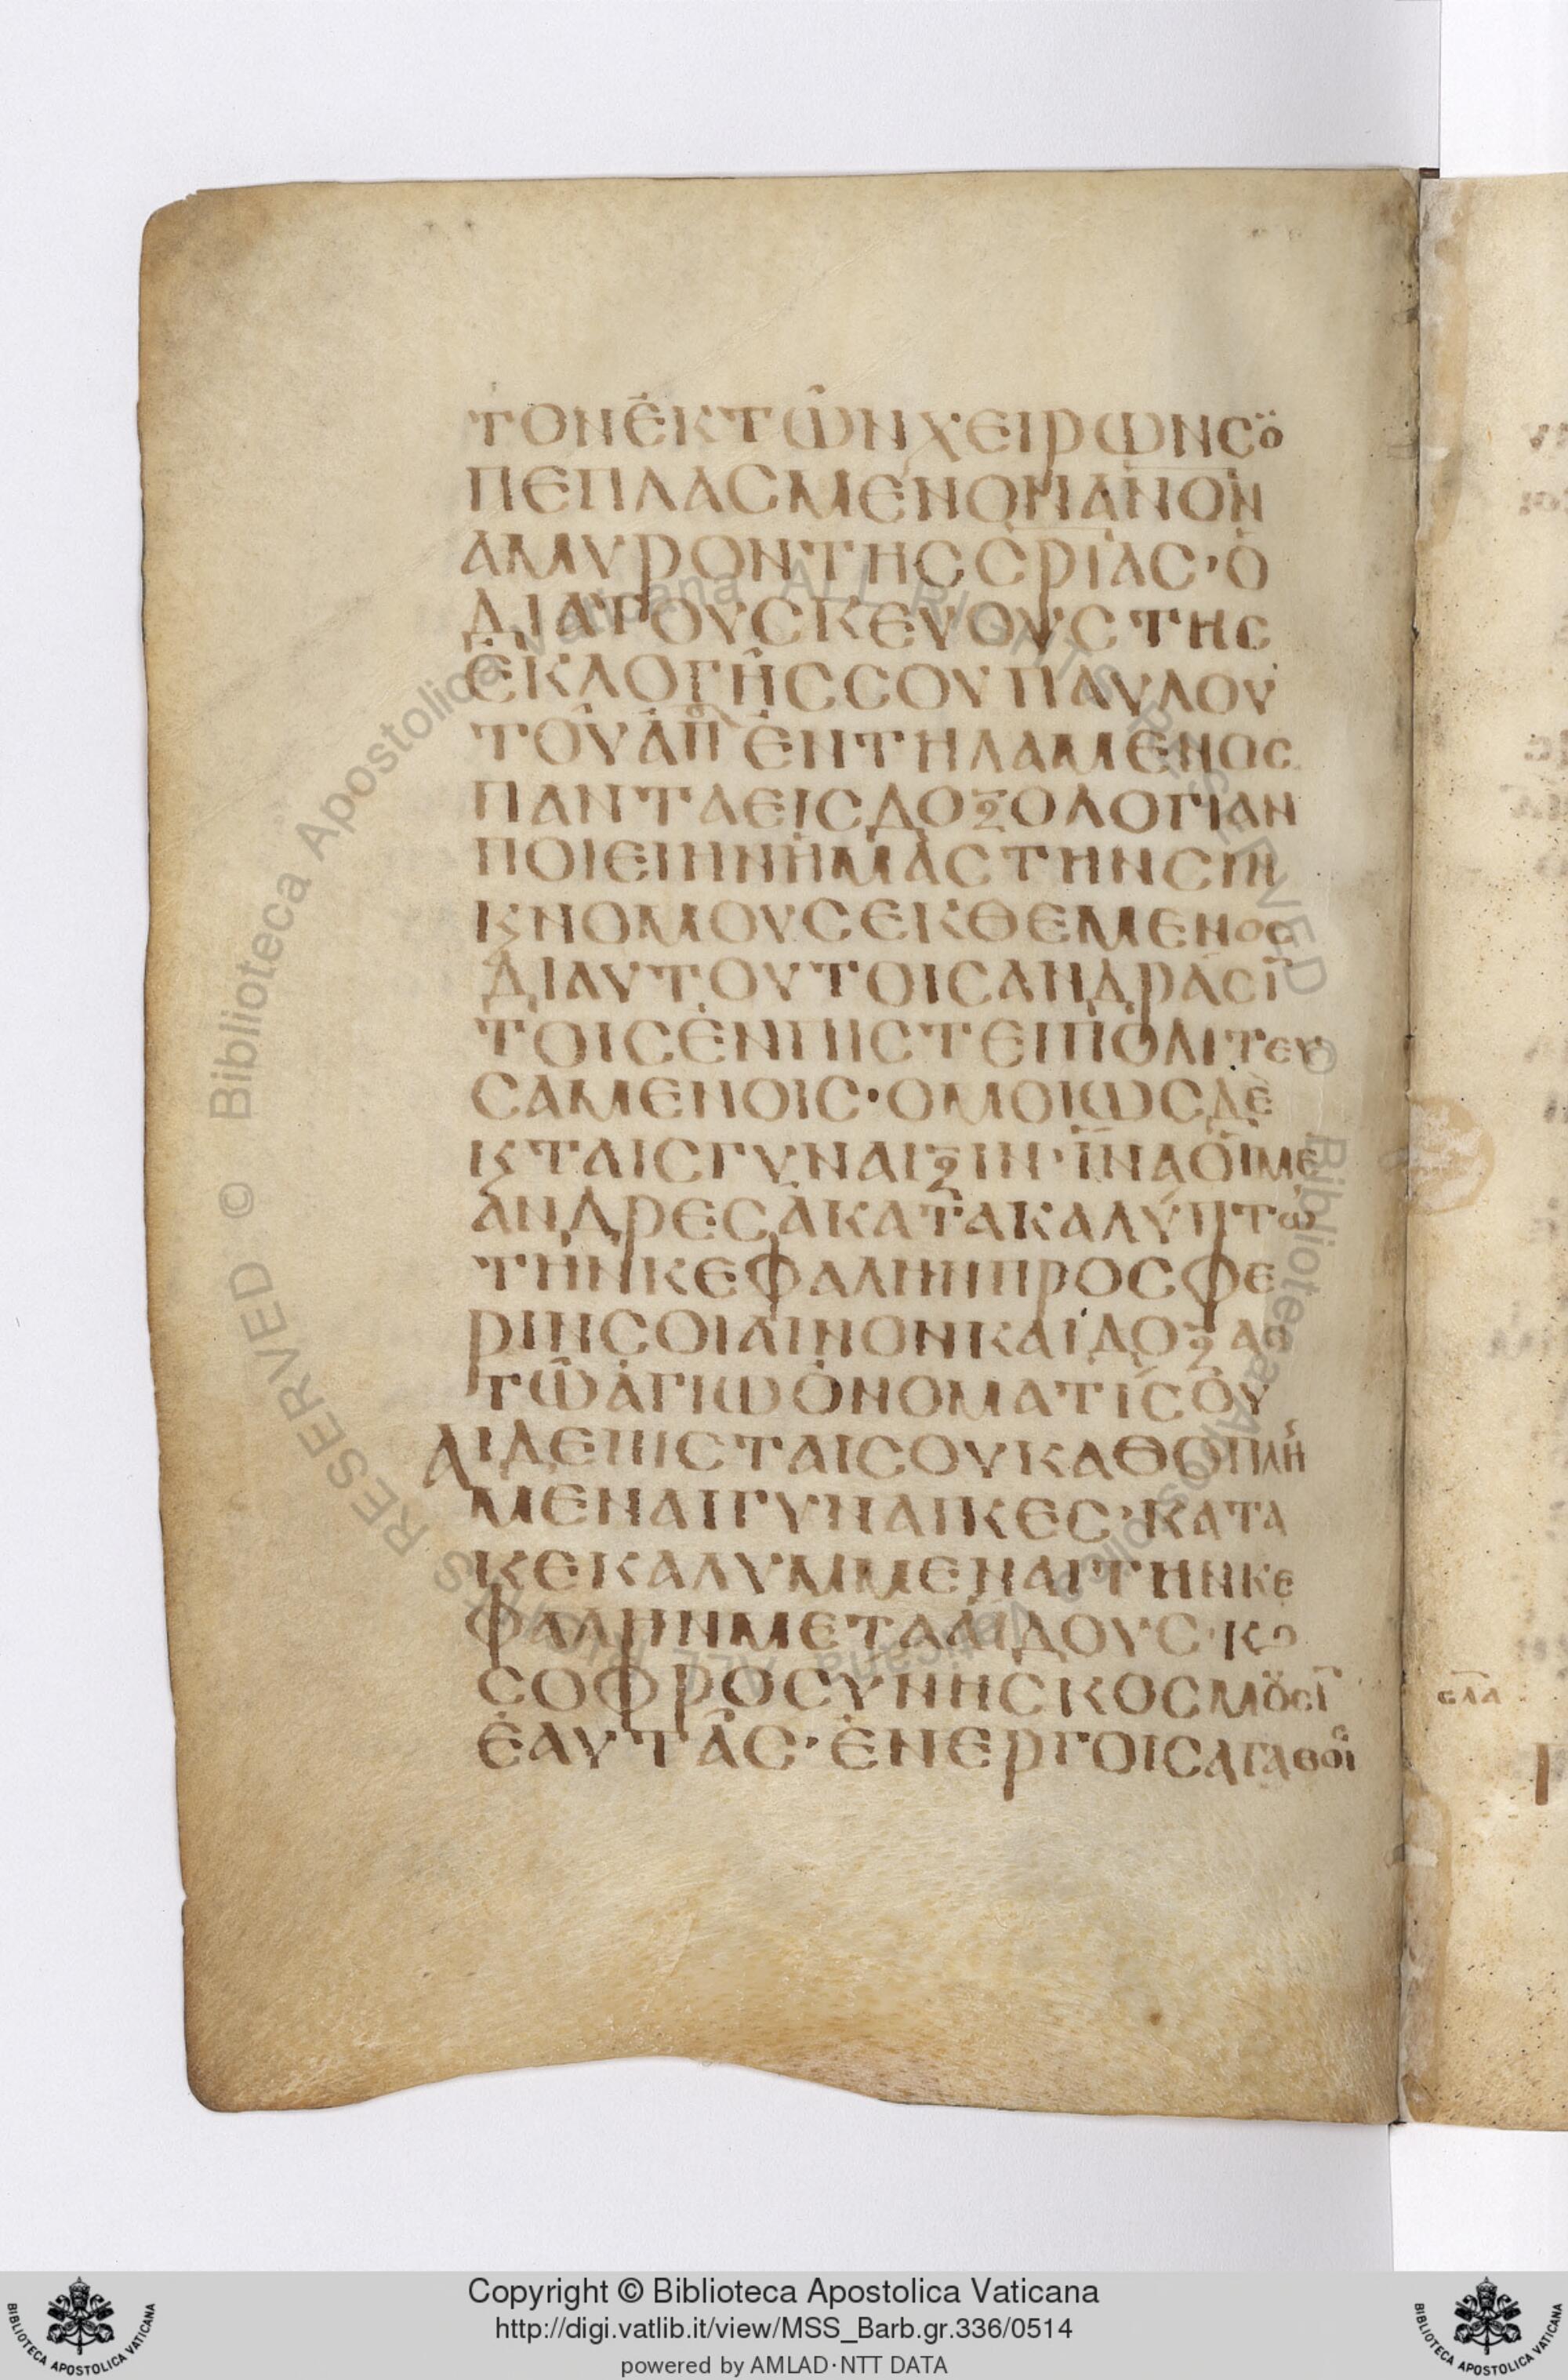 ΤΟΝἐΚΤῶΝΧΕΙΡΩΝΣȣ
ΠΕΠΛΑΣΜΕΝΟΝΑΝΟΝ
ΑΜΥΡΟΝΤΗΣΣΡΙΑΣ·Ὁ
ΔΙΑΤΟΥΣΚΕΥΟΥΣΤΗΣ
ἘΚΛΟΓῆΣΣΟΥΠΑΥΛΟΥ
ΤΟΥἈΠοἘΝΤΗΛΑΜΕΝΟΣ
ΠΑΝΤΑΕΙΣΔΟΞΟΛΟΓΙΑΝ
ΠΟΙΕΙΗΝἡΜᾶΣΤΗΝΣΗΝ
ΚΝΟΜΟΥΣΕΚΘΕΜΕΝΟΣ
ΔΙΑΥΤΟΥΤΟΙΣΑΝΔΡΑΣΙ
ΤΟΙΣἐΝΠΙΣΤΕΙΠΟΛΙΤΕΥ
ΣΑΜΕΝΟΙΣ·ΟΜΟΙΩΣΔὲ
ΚΤΑΙΣΓΥΝΑΙΞΙΝ·ΪΝΑΟἱΜΕ
ἄΝΔΡΕΣἀΚΑΤΑΚΑΛύΠΤΩ
ΤὴΝΚΕΦΑΛΗΝΠΡΟΣΦΕ
ΡΙΝΣΟΙΑΙΝΟΝΚΑΙΔΟΞΑΣ
ΤῶἁΓΙΩὀΝΟΜΑΤΙΣΟΥ
ΑΙΔΕΠΙΣΤΑΙΣΟΥΚΑΘΟΠΛΗ
ΜΕΝΑΙΓΥΝΑΙΚΕΣ·ΚΑΤΑ
ΚΕΚΑΛΥΜΜΕΝΑΙΤΗΝΚΕ
ΦΑΛΗΝΜΕΤΑΑΙΔΟΥΣ·Κ
ΣΟΦΡΟΣΥΝΗΣΚΟΣΜȣΣΙ
ἑΑΥΤὰΣ·ἐΝΕΡΓΟΙΣΑΓΑΘΟΙΣ
Copyright © Biblioteca Apostolica Vaticana
http://digi.vatlib.it/view/MSS_Barb.gr.336/0514
powered by AMLAD·NTT DATA